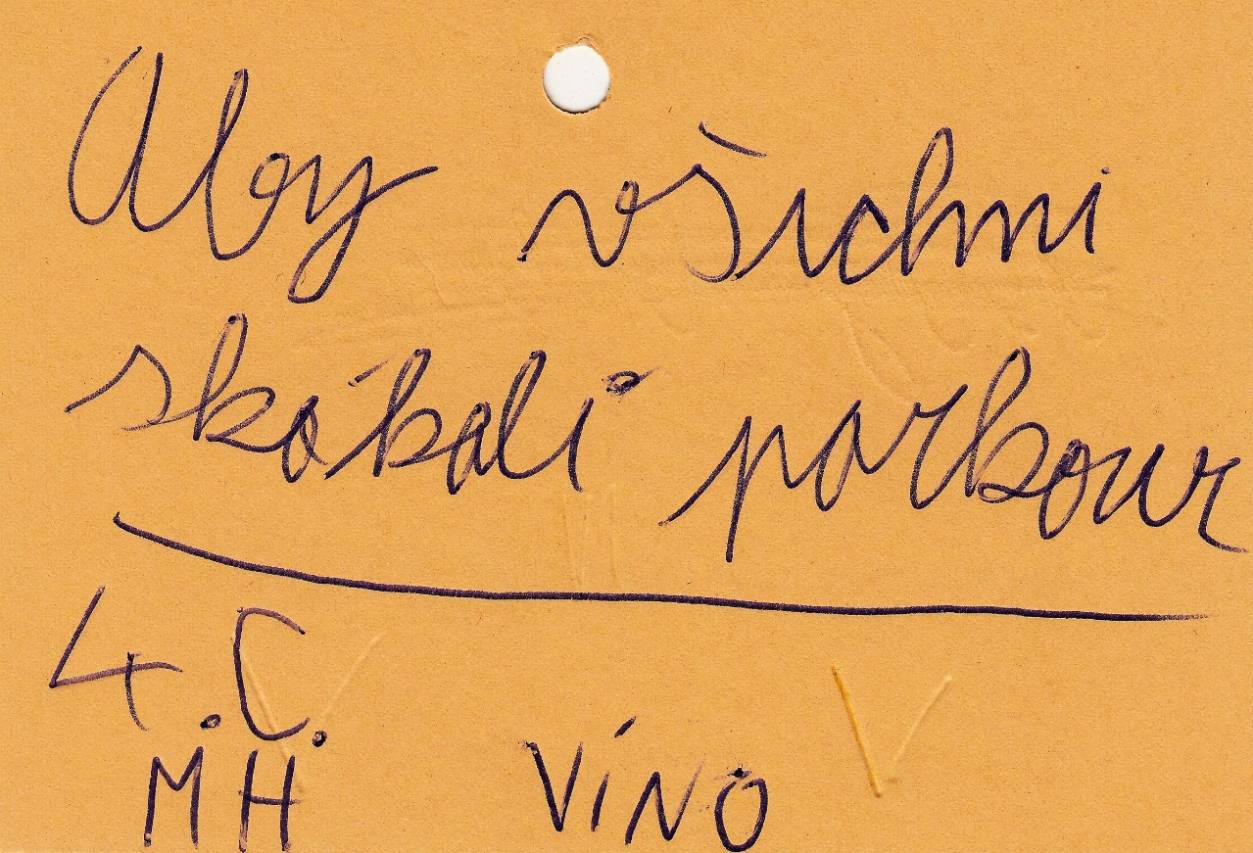 Aby všichni
skákali parkour
4.C.
MH VÍNO